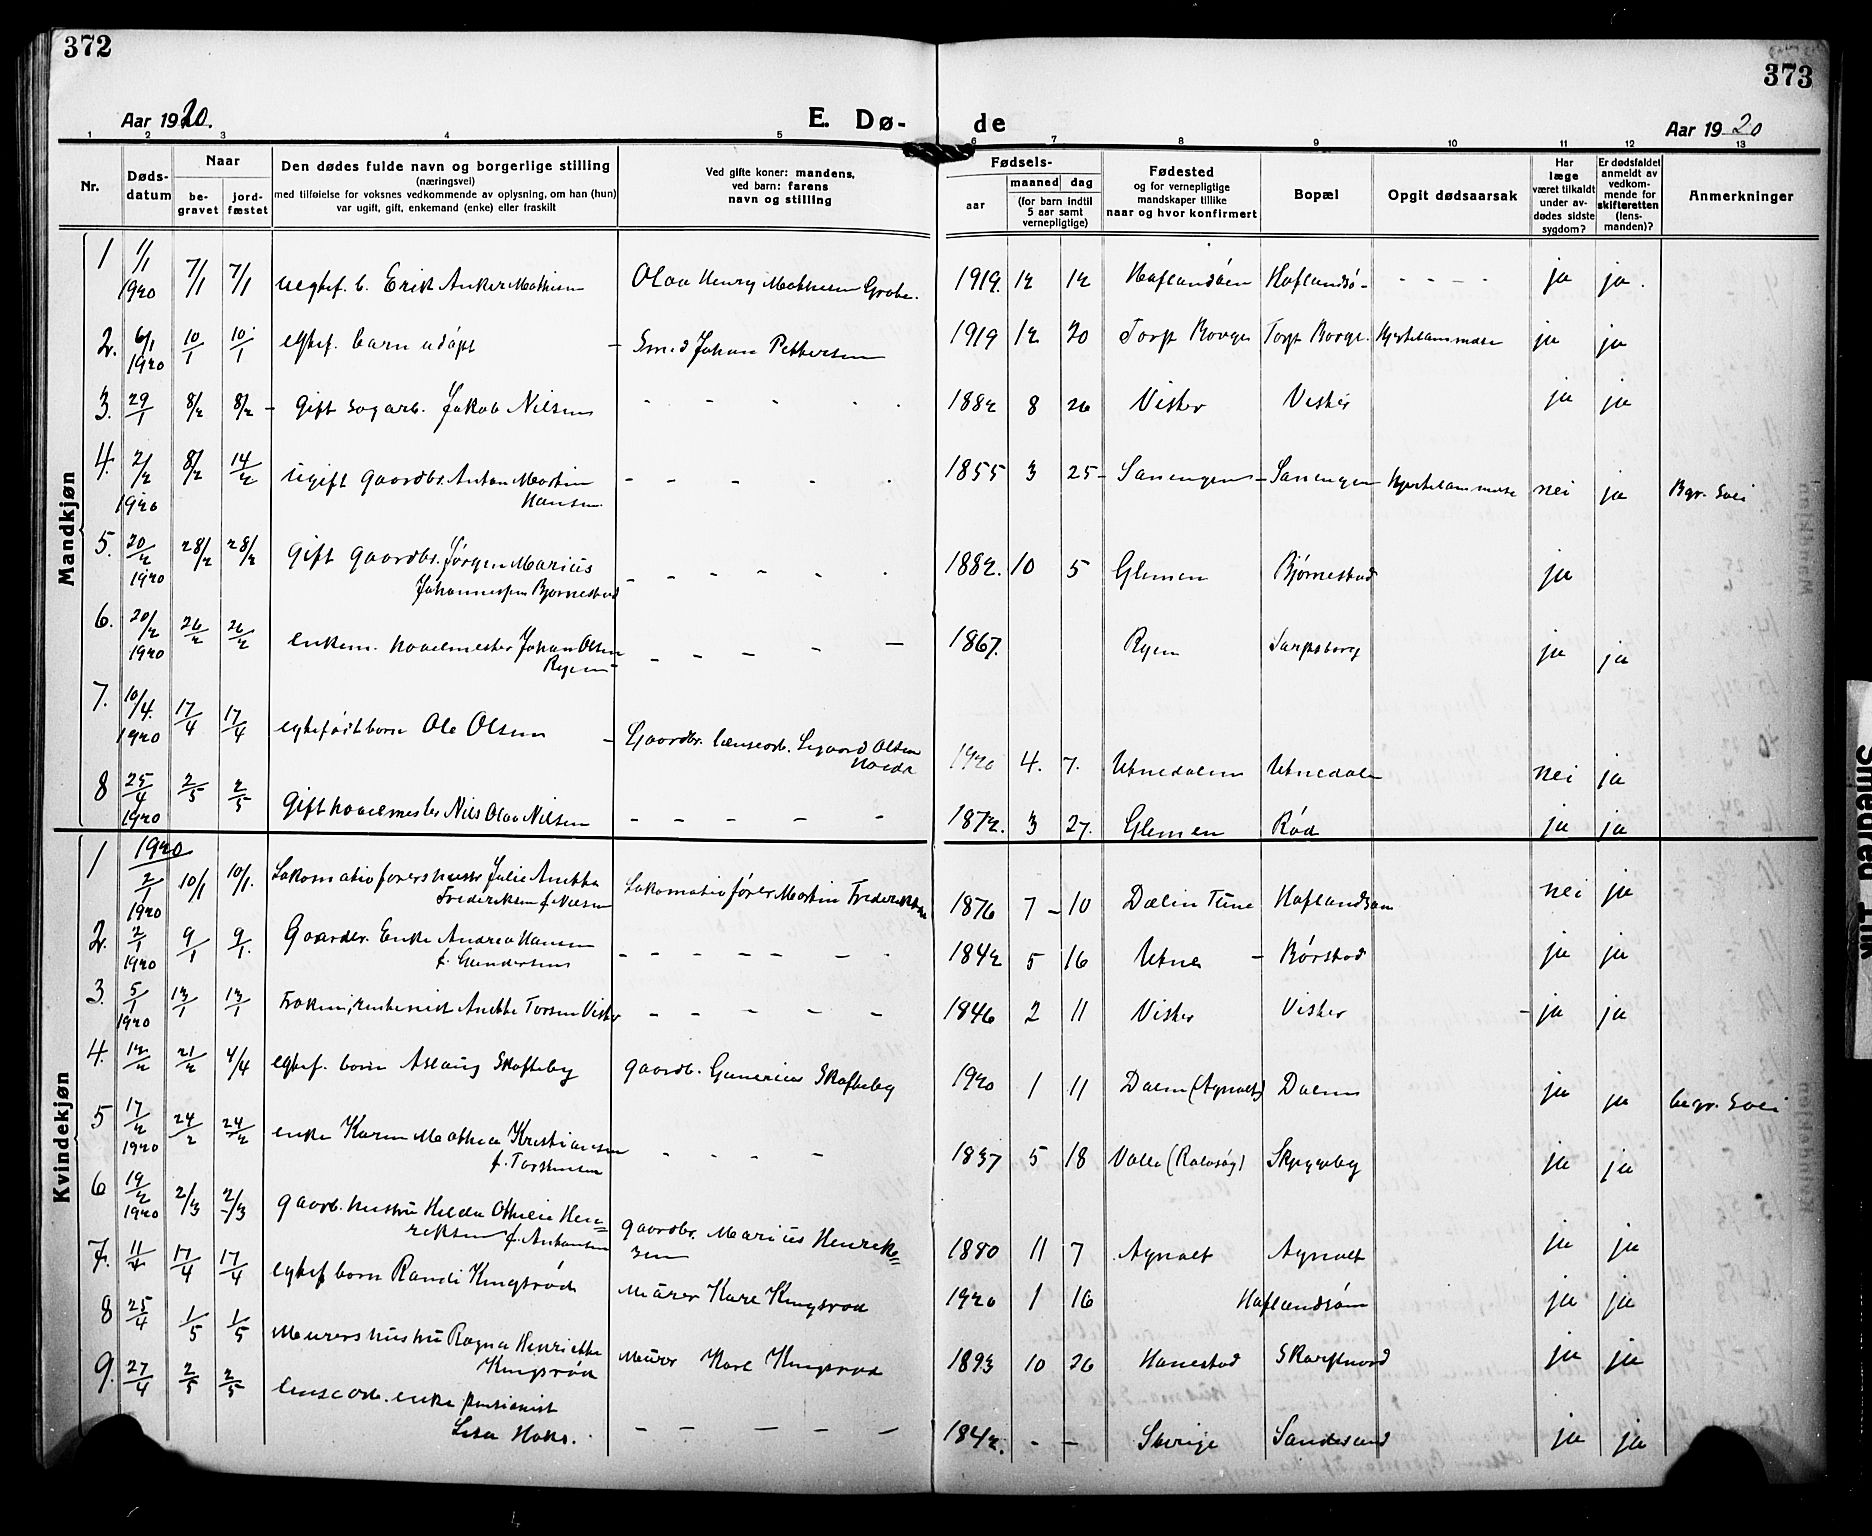 372
373
Aar 1920.
E. Døde
Aar 1920
1 2 3 4 5 6 7 8 9 10 11 12 13
Nr.
Døds-
datum
Naar
be-
gravet
jord-
fæstet
Den dødes fulde navn og borgerlige stilling
(næringsvei)
med tilføielse for voksnes vedkommende av oplysning, om han (hun)
var ugift, gift, enkemand (enke) eller fraskilt
Ved gifte koner: mandens,
ved barn: farens
navn og stilling
Fødsels-
aar
maaned
dag
(for barn indtil
5 aar samt
vernepligtige)
Fødested
og for vernepligtige
mandskaper tillike
naar og hvor konfirmert
Bopæl
Opgit dødsaarsak
Har
læge
været tilkaldt
under av-
dødes sidste
sygdom?
Er dødsfaldet
anmeldt av
vedkom-
mende for
skifteretten
(lens-
manden)?
Anmerkninger
Mandkjøn
1 1/1 1920 7/1 7/1 uegtef. b. Erik Anker Mathisen Olav Henry Mathisen 1919. 12 12 Haflandsøen Haflandsø - - - - ja ja.
2. 6/1 1920 10/1 10/1 egtef. barn udøpt - Smed Johan Pettersen 1919 12 20 Torp Borge Torp Borge. ja ja
3. 29/1 8/2 8/2 - Gift sagarb. Jakob Nilsen - - - - - 1882 8 26 Visker Visker ja ja
4. 2/2 1920 8/2 14/2 ugift gaardbr. Anton Martin
Hansen. - - - - - 1855 3 25 - Sanengen - Sanengen nei ja Bgr. Svei
5. 20/2 1920 28/2 28/2 Gift gaardbr. Jørgen Marius
Johannessen Bjørnestad - - - - - - 1882. 10 5 Glemen Bjørnestad ja
6. 20/2 1920 26/2 26/2 enkem. hovelmester Johan Olsen
Ryen - - - - - 1867. Ryen Sarpsborg ja ja
7. 10/4. 1920 17/4 17/4 egtefødt barn Ole Olsen - Gaardbr. lænsearb. Sigvard Olsen 1920 4. 7. Utnedalen Utnedalen nei ja
8 25/4 1920 2/5 2/5 Gift hovelmester Nils Olav Nilsen - - - - - 1872. 3 27. Glemen Rød ja ja
Kvindekjøn
1920
1 2/1 1920 10/1 10/1. Lokomotivførers hustr Julie Anette
Frederiksen f. Nilsen Lokomotivfører Martin Frederiksen 1876 7 - 10 Dælin Tune Haflandsøen nei ja
2. 2/1 1920 9/1 9/1. Gaardbr. Enke Andrea Hansen
f. Gundersen - - - - - - - 1842 5 16 Utne - Børstad ja ja
3. 5/1 1920 13/1 13/1 Frøken, rentenist Anette Torsen Visker - - - - - 1846 2 11 Visker Visker - ja ja
4. 12/2 21/2 4/4 egtef. barn Aslaug Skofteby gaardb. Gunerius Skofteby 1920 1 11 Dalen (Agnalt) Dalen ja ja begr. Svei
5 17/2 1920 24/2 24/2 enke Karen Mathea Kristiansen
f. Torstensen - - - - - 1837 5 18 Valle (Rolvsøy) ja ja
6 19/2 1920 2/3 2/3 gaarb. hustru Hilda Othilie Hen=
riksen f. Antonsen gaardbr. Marius Henrik=
sen 1880 11 7 Agnalt Agnalt ja ja
7. 11/4 17/4 17/4 egtef barn Randi Kingsrød Murer Karl Kingsrød 1920 1 16 Haflandsøen ja ja
8 25/4 1/5 1/5 Murers hustru Ragna Henriette
Kingsrød Murer Karl Kingsrød 1893 10 26 Hanestad ja ja
9. 27/4 2/5 2/5 lensearb. enke pensionist
Lisa - - - - - 1842. - - Sverige Sandesund ja ja